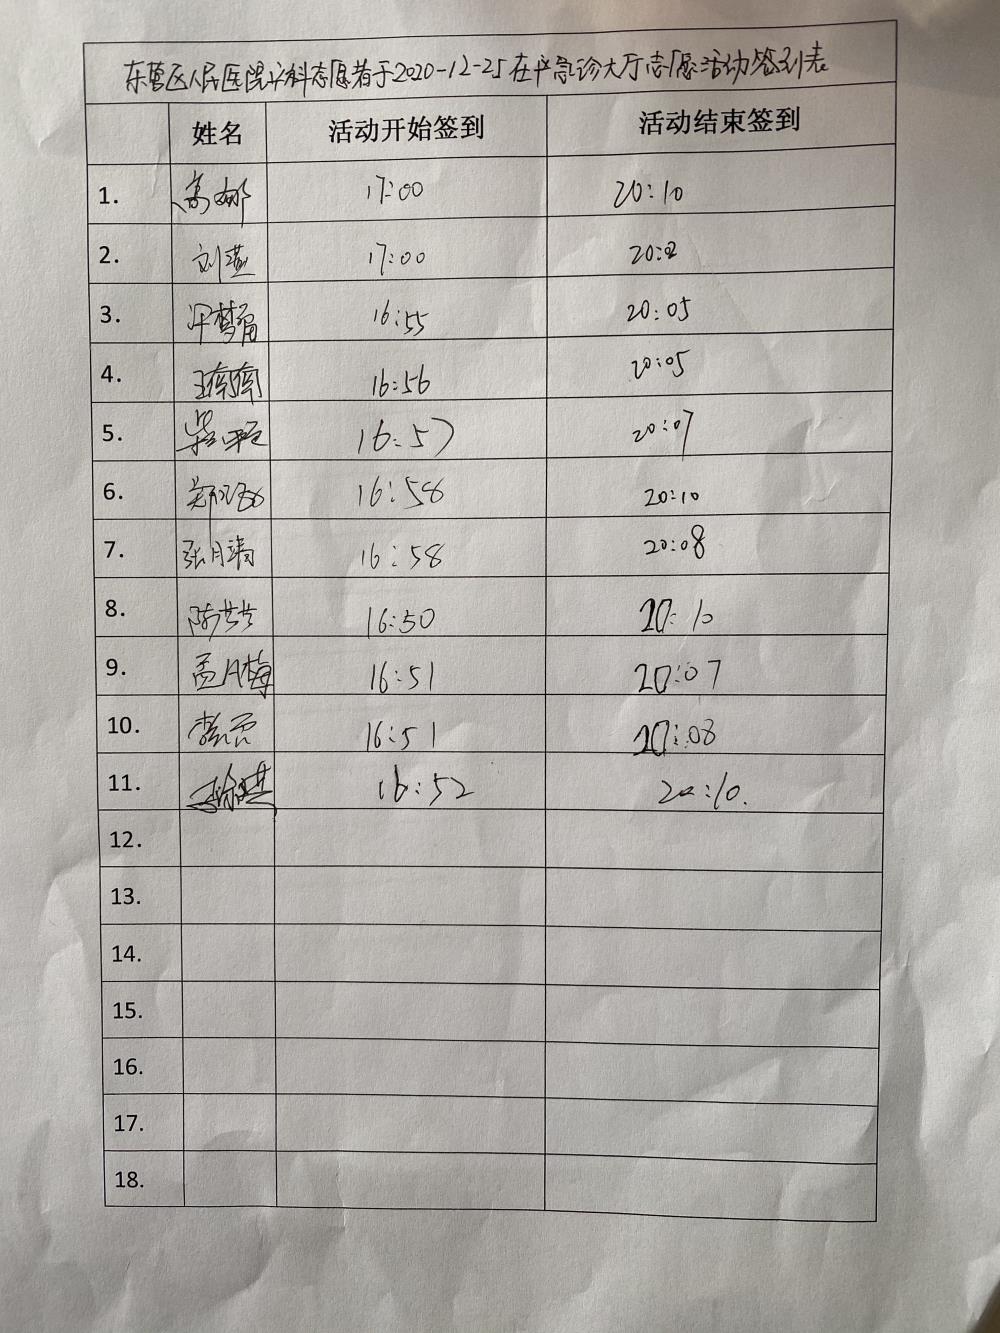 东营区人民医院 科志愿者于2020-12-25在 急诊大厅志愿活动签到表
姓名 活动开始签到 活动结束签到
1. 高娜 17:00 20:10
2. 刘燕 17:00
3. 16:55 20:05
4. 王南南 16:56 20:05
5. 16:57 20:07
6. 16:58 20:10
7. 张月清 16:58 20:08
8. 陈芸芸 16:50 20:10
9. 孟月梅 16:51 20:07
10. 16:51 20:08
11. 16:52 20:10.
12.
13.
14.
15.
16.
17.
18.